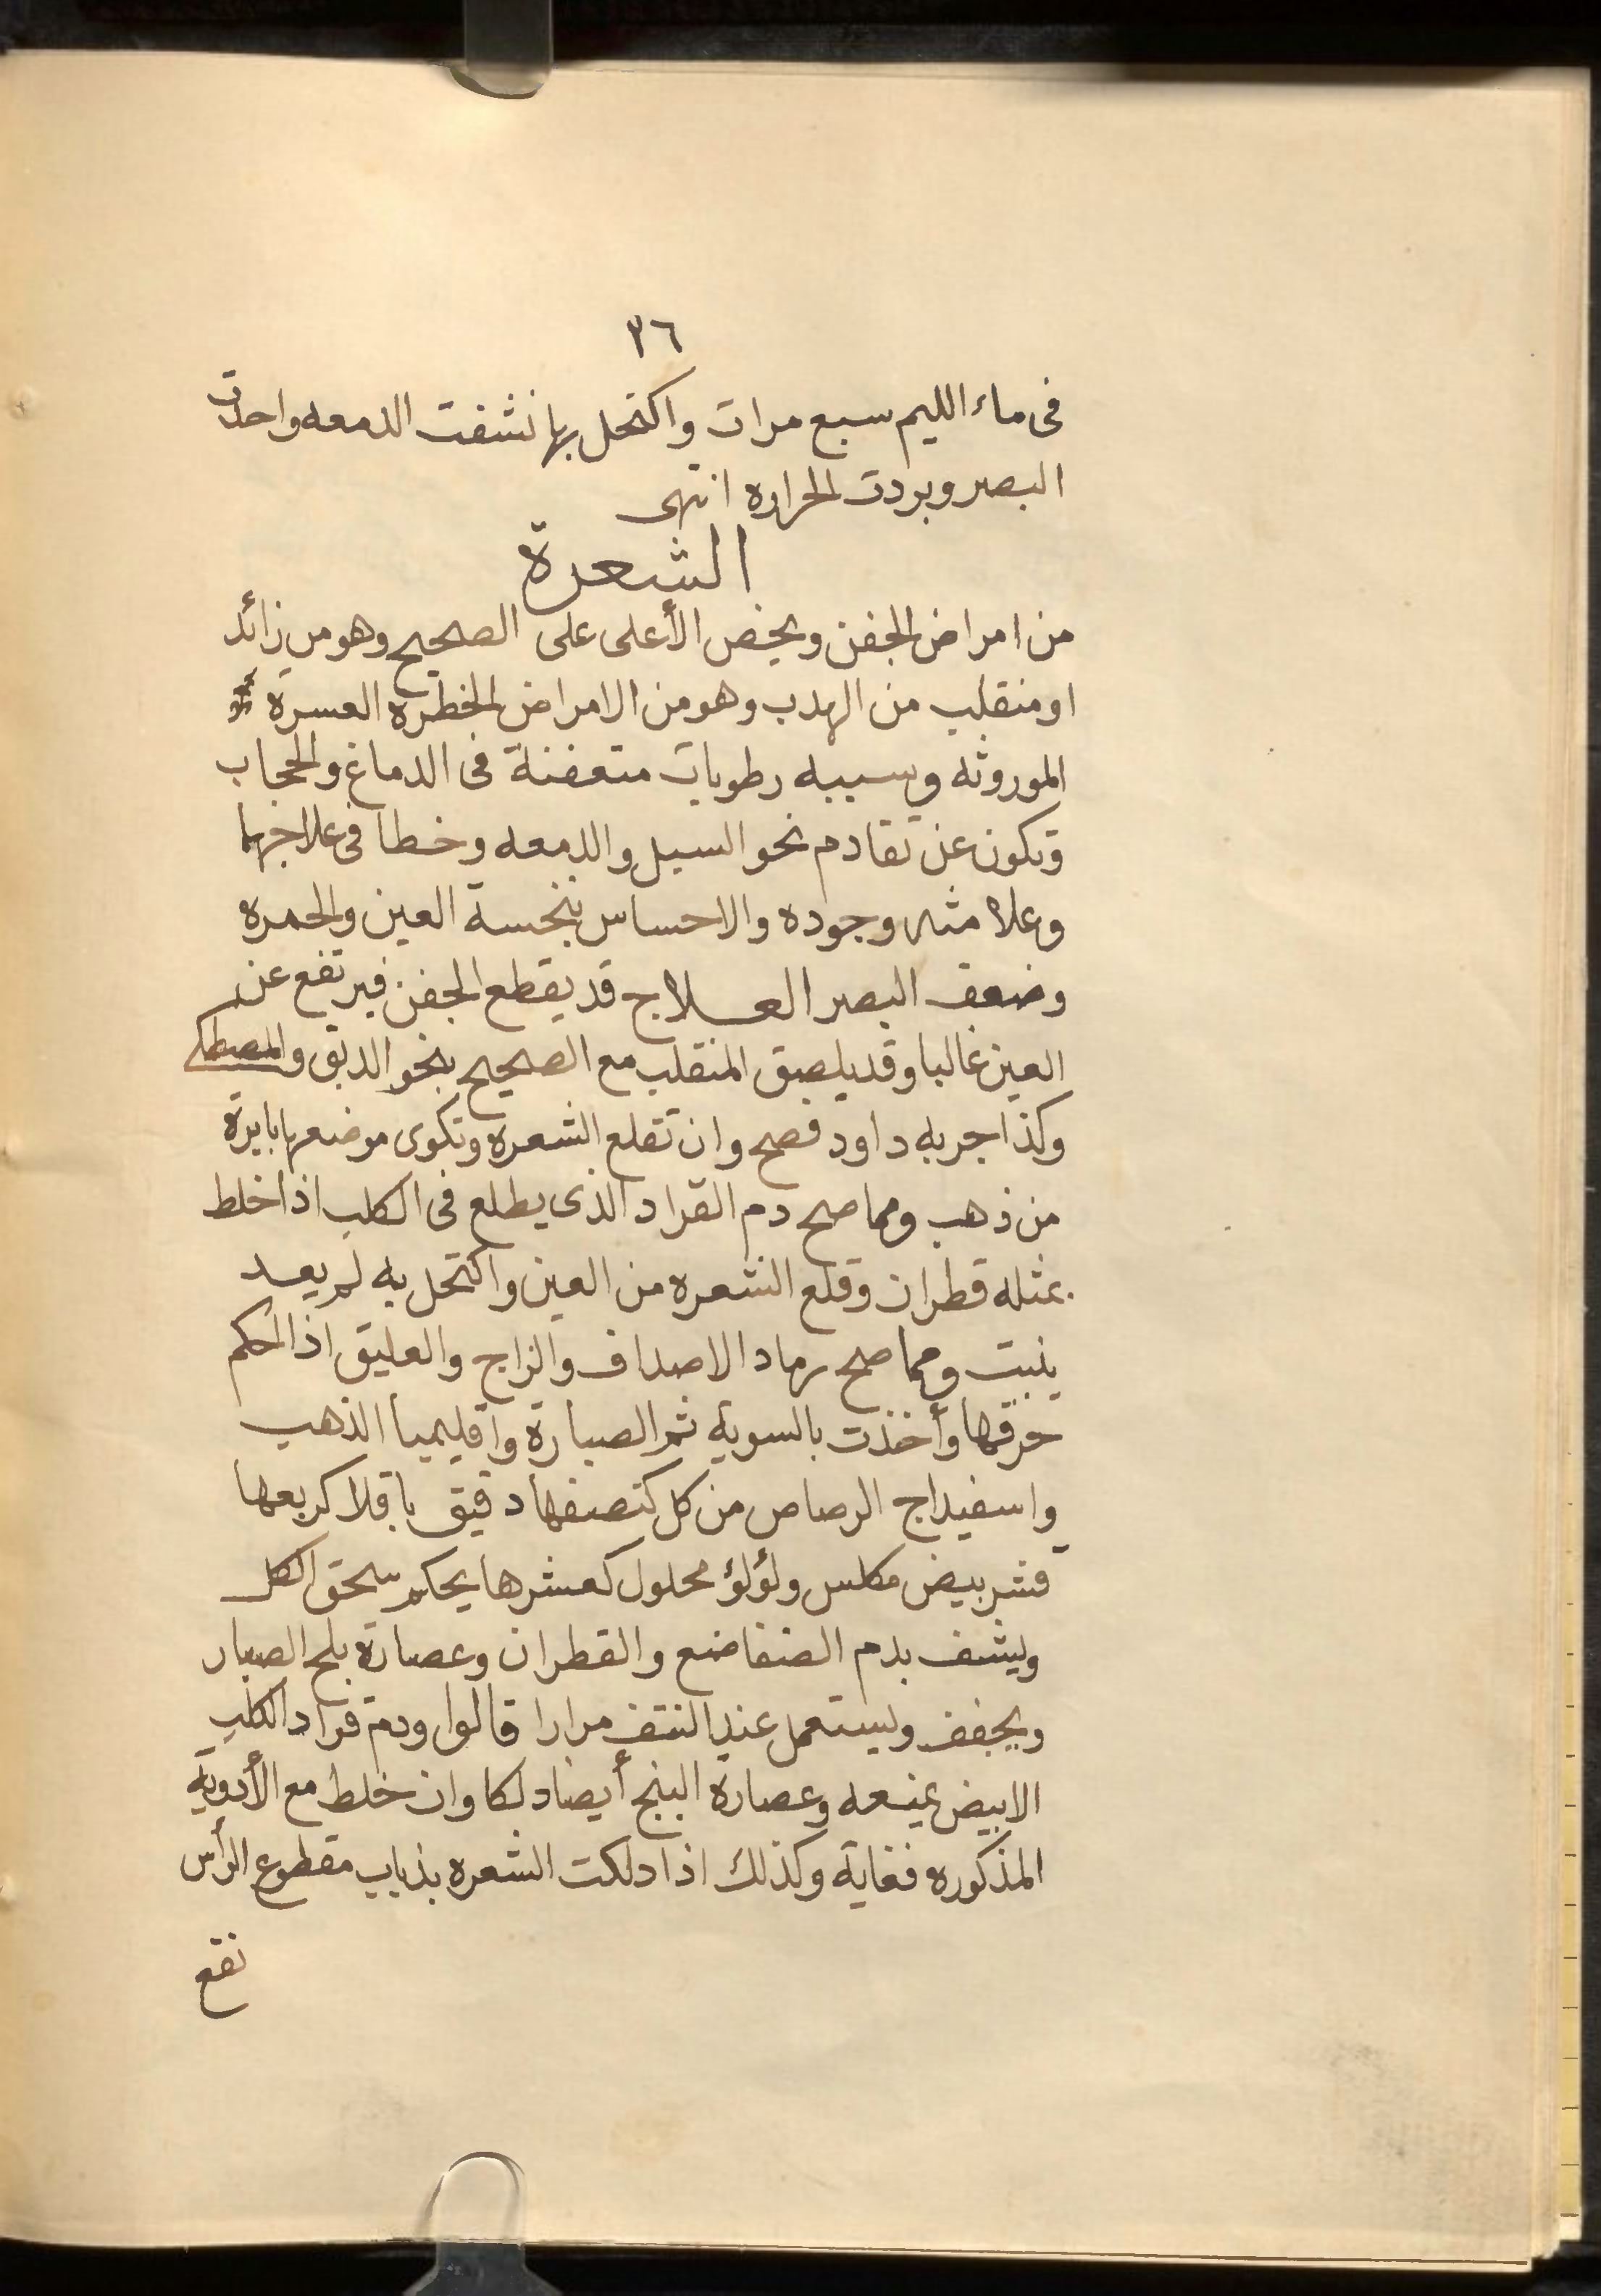 ٣٦
فى ماء الليم سبع مرات واكتحل بها نشفت الدمعه واحدت
البصر وبردت الحراره انتهى
الشعرة
من امراض الجفن ويخص الأعلى على الصحيح وهو من زائد
او منقلب من الهدب وهو من الامراض الخطره العسرة
الموروثه وسببه رطوبات متعفنة فى الدماغ والحجاب
وتكون عن تقادم نحو السبل والدمعه وخطا فى علاجهما
وعلامته وجوده والاحساس بنخسة العين والحمره
وضعف البصر العلاج قد يقطع الجفن فيرتفع عن
العين غالبا وقد يلصق المنقلب مع الصحيح بنحو الدبق والمصطكى
وكذا جربه داود فصح وان تقلع الشعره وتكوى موضعها بابرة
من ذهب ومما صح دم القراد الذى يطلع فى الكلب اذا خلط
بمثله قطران وقلع الشعره من العين واكتحل به لم يعد
ينبت ومما صح رماد الاصداف والزاج والعليق اذا احكم
حرقها وأخذت بالسويه ثم الصبارة واقليميا الذهب
واسفيداج الرصاص من كل كنصفها دقيق باقلا كربعها
قشر بيض مكلس ولؤلؤ محلول كعشرها يحكم سحق الكل
ويشف بدم الضفاضع والقطران وعصارة بلح الصبار
ويجفف ويستعمل عند النتف مرارا قالوا ودم قراد الكلب
الابيض يمنعه وعصارة البنج أيضا دلكا وان خلط مع الأدويه
المذكوره فغاية وكذلك اذا دلكت الشعره بذباب مقطوع الرأس
نقع